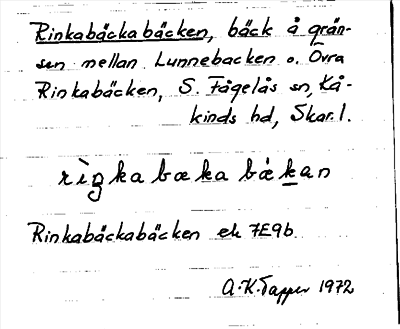 Rinkabäckabäcken, bäck å grän-
sen mellan Lunnebacken o. Övra
Rinkabäcken, S. Fågelås sn, Kå-
kinds hd, Skar. l.
rìŋkabækabækan
Rinkabäckabäcken ek 7E9b
A.K.Tapper 1972